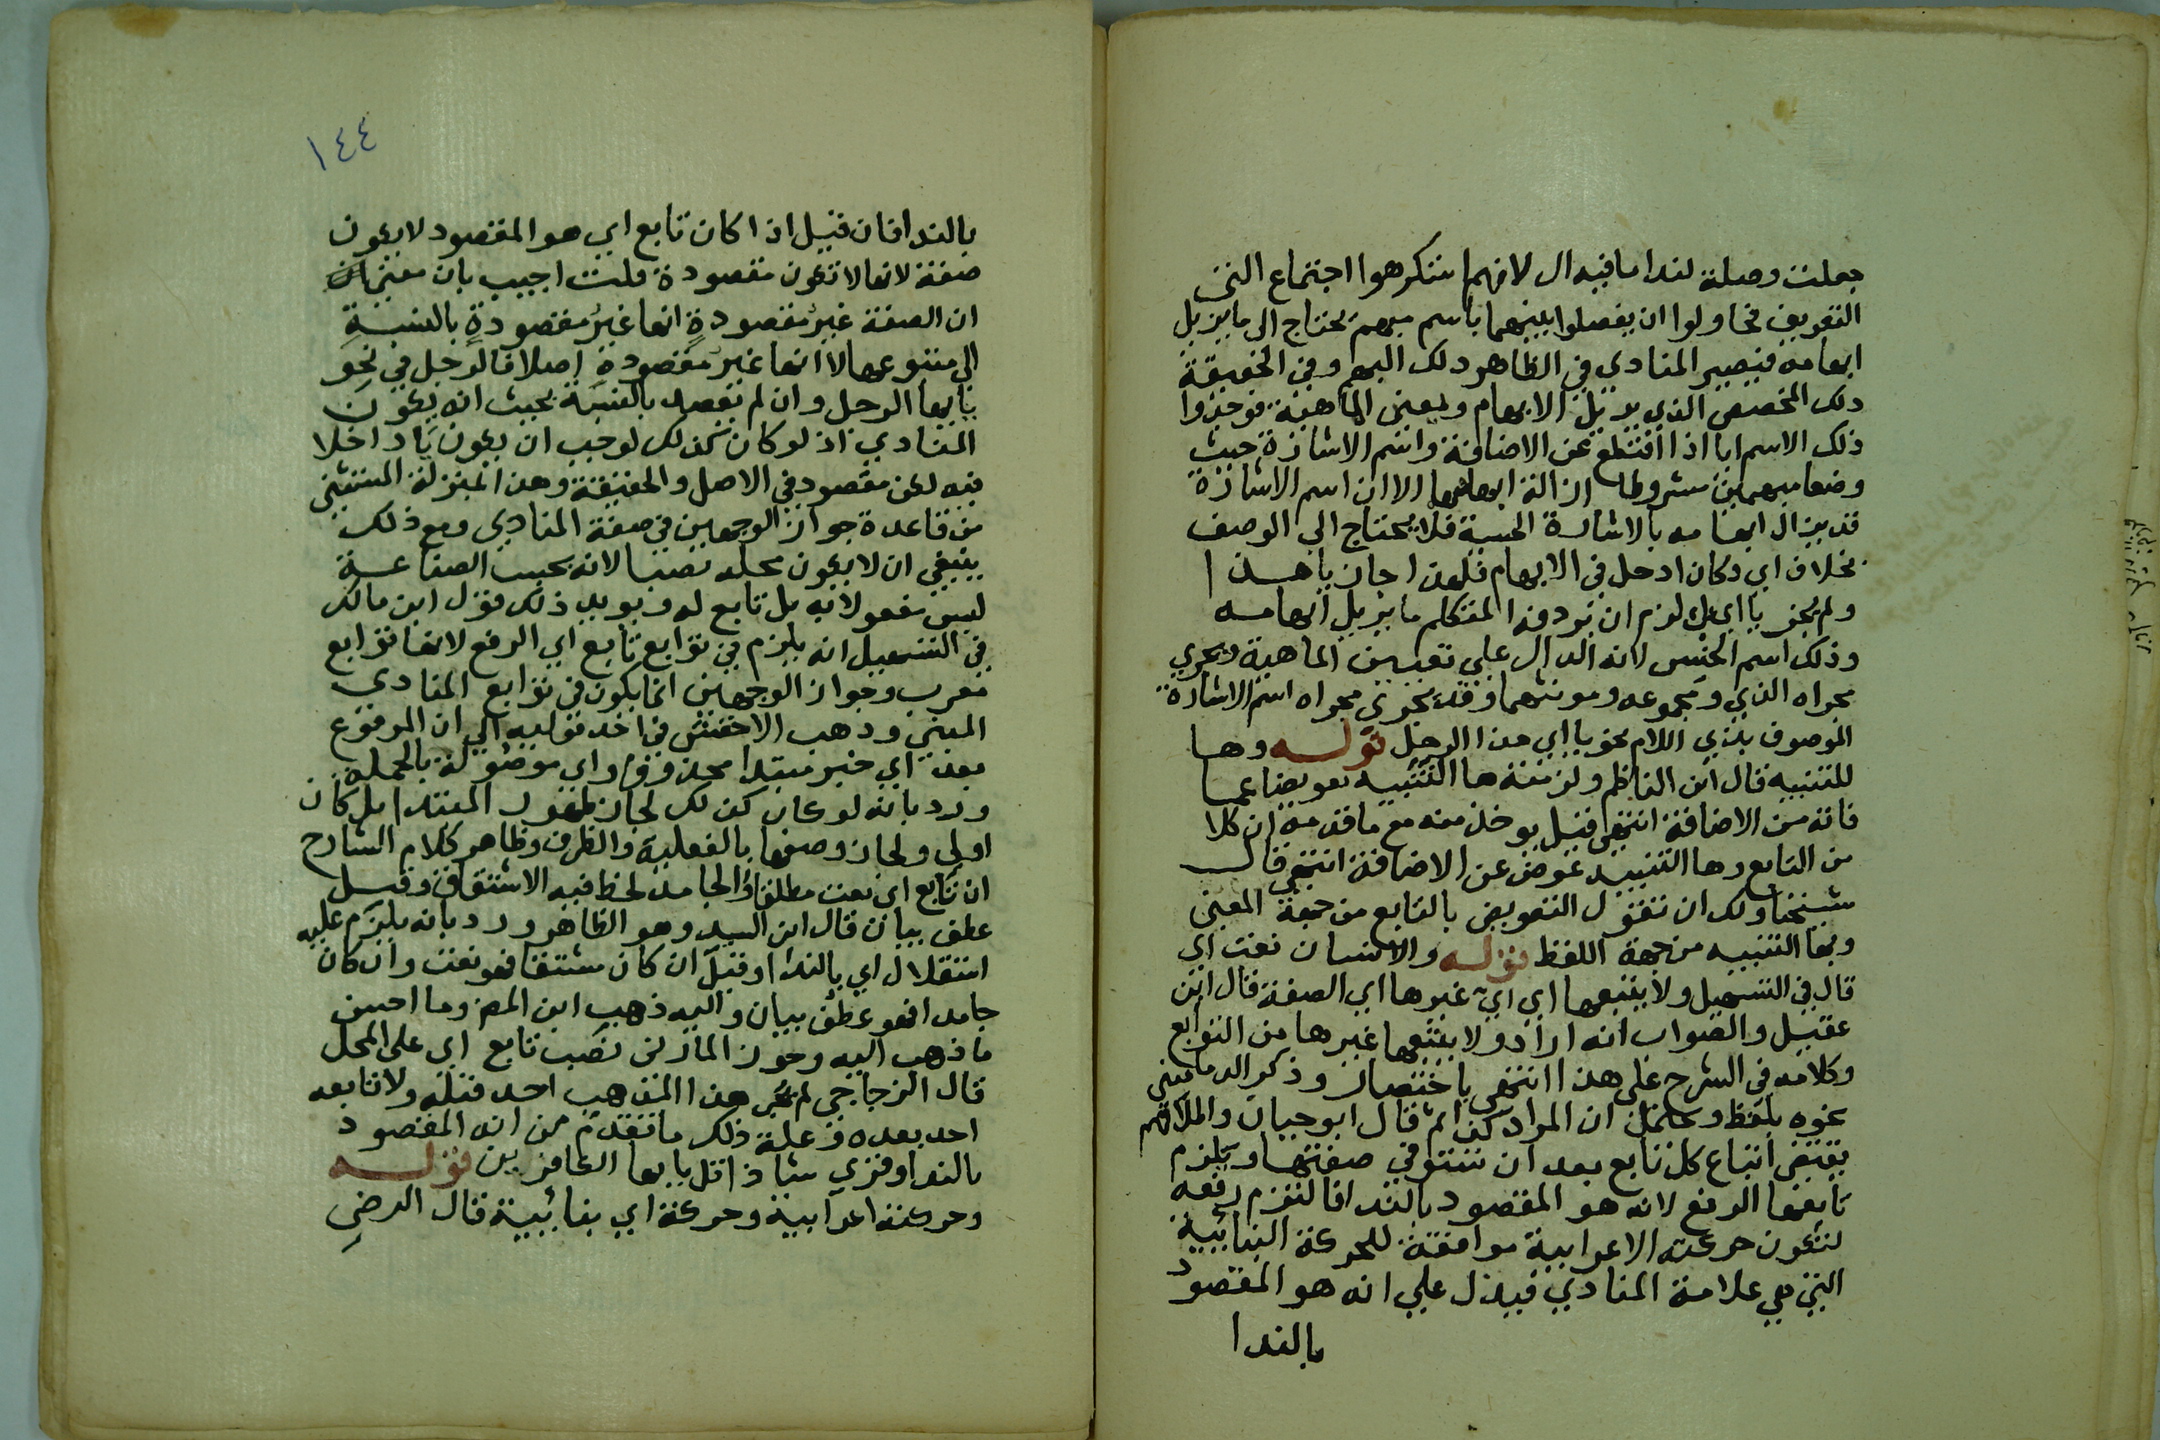 جعلت وصلة لندا ما فيه ال لانهم استكرهوا اجتماع التى
التعريف فحاولوا ان يفصلوا بينهما باسم مبهم يحتاج الى ما يزيل
ابهامه فيصير المنادي في الظاهر ذلك المبهم وفي الحقيقة
ذلك المخصص الذي يزيل الابهام ويعين الماهية فوجدوا
ذلك الاسم ايا اذا اقتطع عن الاضافة واسم الاشارة حيث
وضعا مبهمين مشروطا ازالة ابهامهما الا ان اسم الاشارة
قد يزال ابهامه بالاشارة الحسية فلا يحتاج الى الوصف
بخلاف اي فكان ادخل في الابهام فلهذا جاز يا هذا
ولم يجز يا اي بل لزم ان يردفه المتكلم ما يزيل ابهامه
وذلك اسم الجنس لانه الدال على تعيين الماهية ويجري
مجراه الذي ومجموعه ومونثهما وقد يجري مجراه اسم الاشارة
الموصوف بذي اللام نحو يا اي هذا الرجل قوله وها
للتنبيه قال ابن الناظم ولزمته ها التنبيه تعويضا عما
فاته من الاضافة انتهى قيل يوخذ منه مع ما قدمه ان كلا
من التابع وها التنبيه عوض عن الاضافة انتهى قال
شيخنا ولك ان تقول التعويض بالتابع من جهة المعنى
وبها التنبيه من جهة اللفظ قوله والانسان نعت اي
قال في التسهيل ولا يتبعها اي اي غيرها اي الصفة قال ابن
عقيل والصواب انه اراد ولا يتبعها غيرها من التوابع
وكلامه في الشرح على هذا انتهى باختصار وذكر الدماميني
نحوه بلفظ ويحتمل ان المراد كذا ثم قال ابو حيان والملا
يقتضي اتباع كل تابع بعد ان تستوفي صفتها ويلزم
تابعها الرفع لانه هو المقصود بالندا فالتزم رفعه
لتكون حركته الاعرابية موافقة للحركة البنائية
التي هي علامة المنادي فيدل على انه هو المقصود
بالندا
١٤٤
بالندا فان قيل اذا كان تابع اي هو المقصود لا يكون
صفة لانها لا تكون مقصودة قلت اجيب بان معنى
ان الصفة غير مقصودة انها غير مقصودة بالنسبة
الى متبوعها لا انها غير مقصودة اصلا فالرجل في نحو
يا ايها الرجل وان لم يقصد بالنسبة بحيث انه يكون
المنادي اذ لو كان كذلك لوجب ان يكون يا داخلا
فيه لكن مقصود في الاصل والحقيقة وهذا بمنزلة المستثنى
من قاعدة جواز الوجهين في صفة المنادي ومع ذلك
ينبغي ان لا يكون محله نصبا لانه بحسب الصناعة
ليس مفعولا به بل تابع له ويويد ذلك قول ابن مالك
في التسهيل انه يلزم في توابع تابع اي الرفع لانها توابع
معرب وجواز الوجهين انما يكون في توابع المنادي
المبني وذهب الاخفش في احد قوليه الى ان المرفوع
بعد اي خبر مبتدا محذوف واي موصولة بالجملة
ورد بانه لو كان كذلك لجاز ظهور المبتدا بل كان
اولى ولجاز وصفها بالفعلية والظرف وظاهر كلام الشارح
ان تابع اي نعت مطلقا والجامد لحظ فيه الاشتقاق وقيل
عطف بيان قال ابن السيد وهو الظاهر ورد بانه يلزم عليه
استقلال اي بالندا وقيل ان كان مشتقا فهو نعت وان كان
جامدا فهو عطف بيان واليه ذهب ابن المصنف وما احسن
ما ذهب اليه وجوز المازني نصب تابع اي على المحل
قال الزجاجي لم يجز هذا المذهب احد قبله ولا تابعه
احد بعده وعلة ذلك ما تقدم من انه المقصود
بالندا وقري شاذا قل يا ايها الكافرين قوله
وحركته اعرابية وحركة اي بنائيية قال الرضي